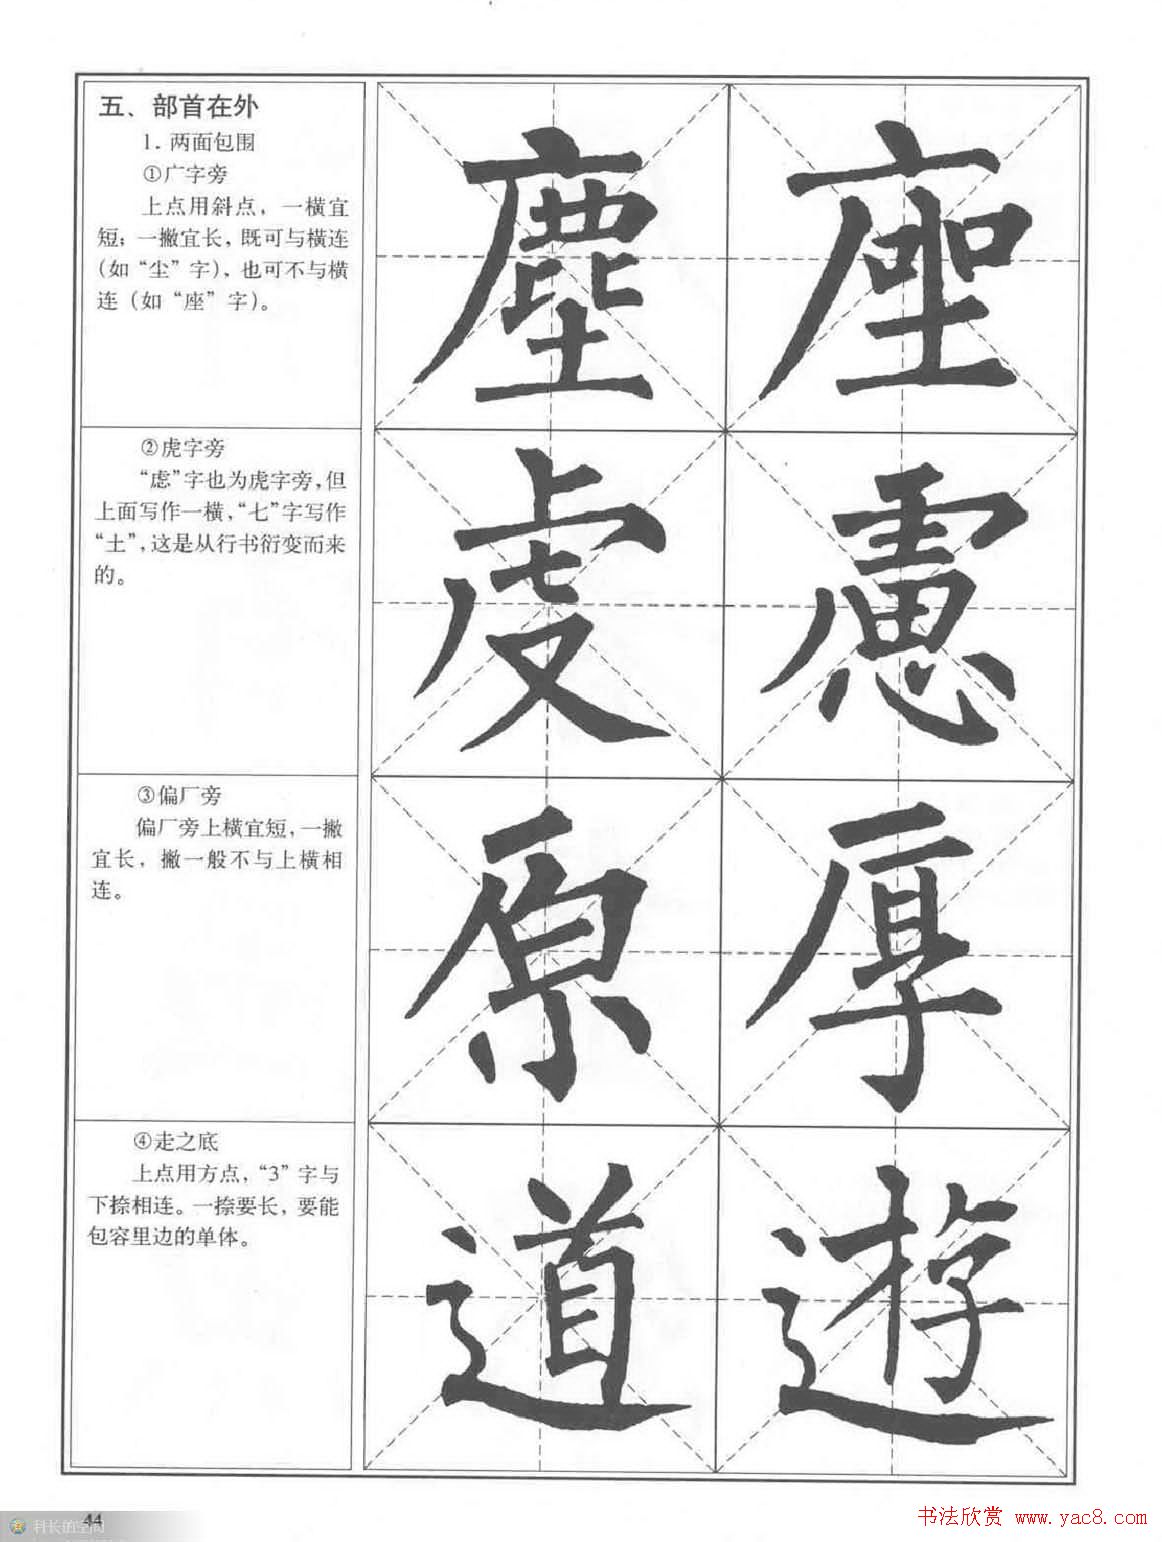 五、部首在外
1. 两面包围
①广字旁
上点用斜点，一横宜
短；一撇宜长，既可与横连
（如“尘”字），也可不与横
连（如“座”字）。
塵 座
②虎字旁
“虑”字也为虎字旁，但
上面写作一横，“七”字写作
“土”，这是从行书衍变而来
的。
虔 慮
③偏厂旁
偏厂旁上横宜短，一撇
宜长，撇一般不与上横相
连。
原 厚
④走之底
上点用方点，“3”字与
下捺相连。一捺要长，要能
包容里边的单体。
道 遊
44
科长的空间
书法欣赏 www.yac8.com